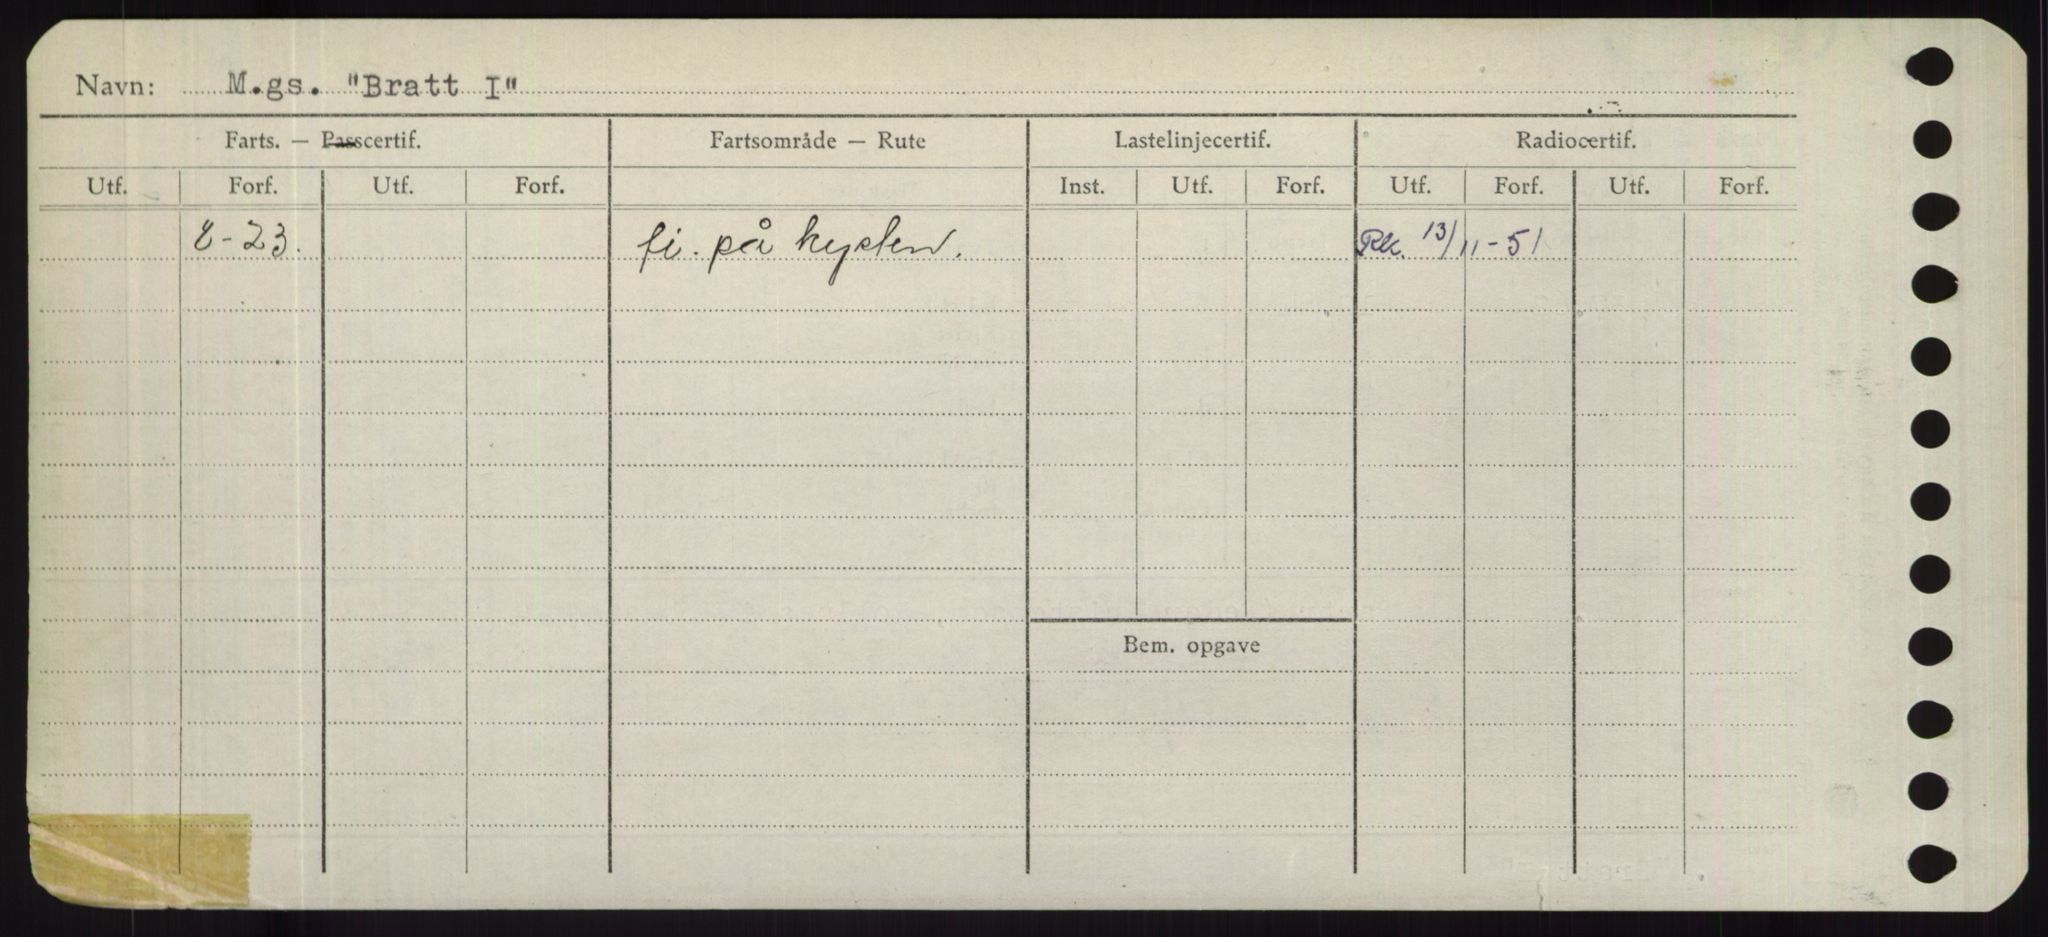 Navn: M.gs. "Bratt I"
Farts. — Passcertif. Fartsområde — Rute Lastelinjecertif. Radiocertif.
Utf. Forf. Utf. Forf. Inst. Utf. Forf. Utf. Forf. Utf. Forf.
8-23. fi. på kysten. Rk. 13/11-51
Bem. opgave